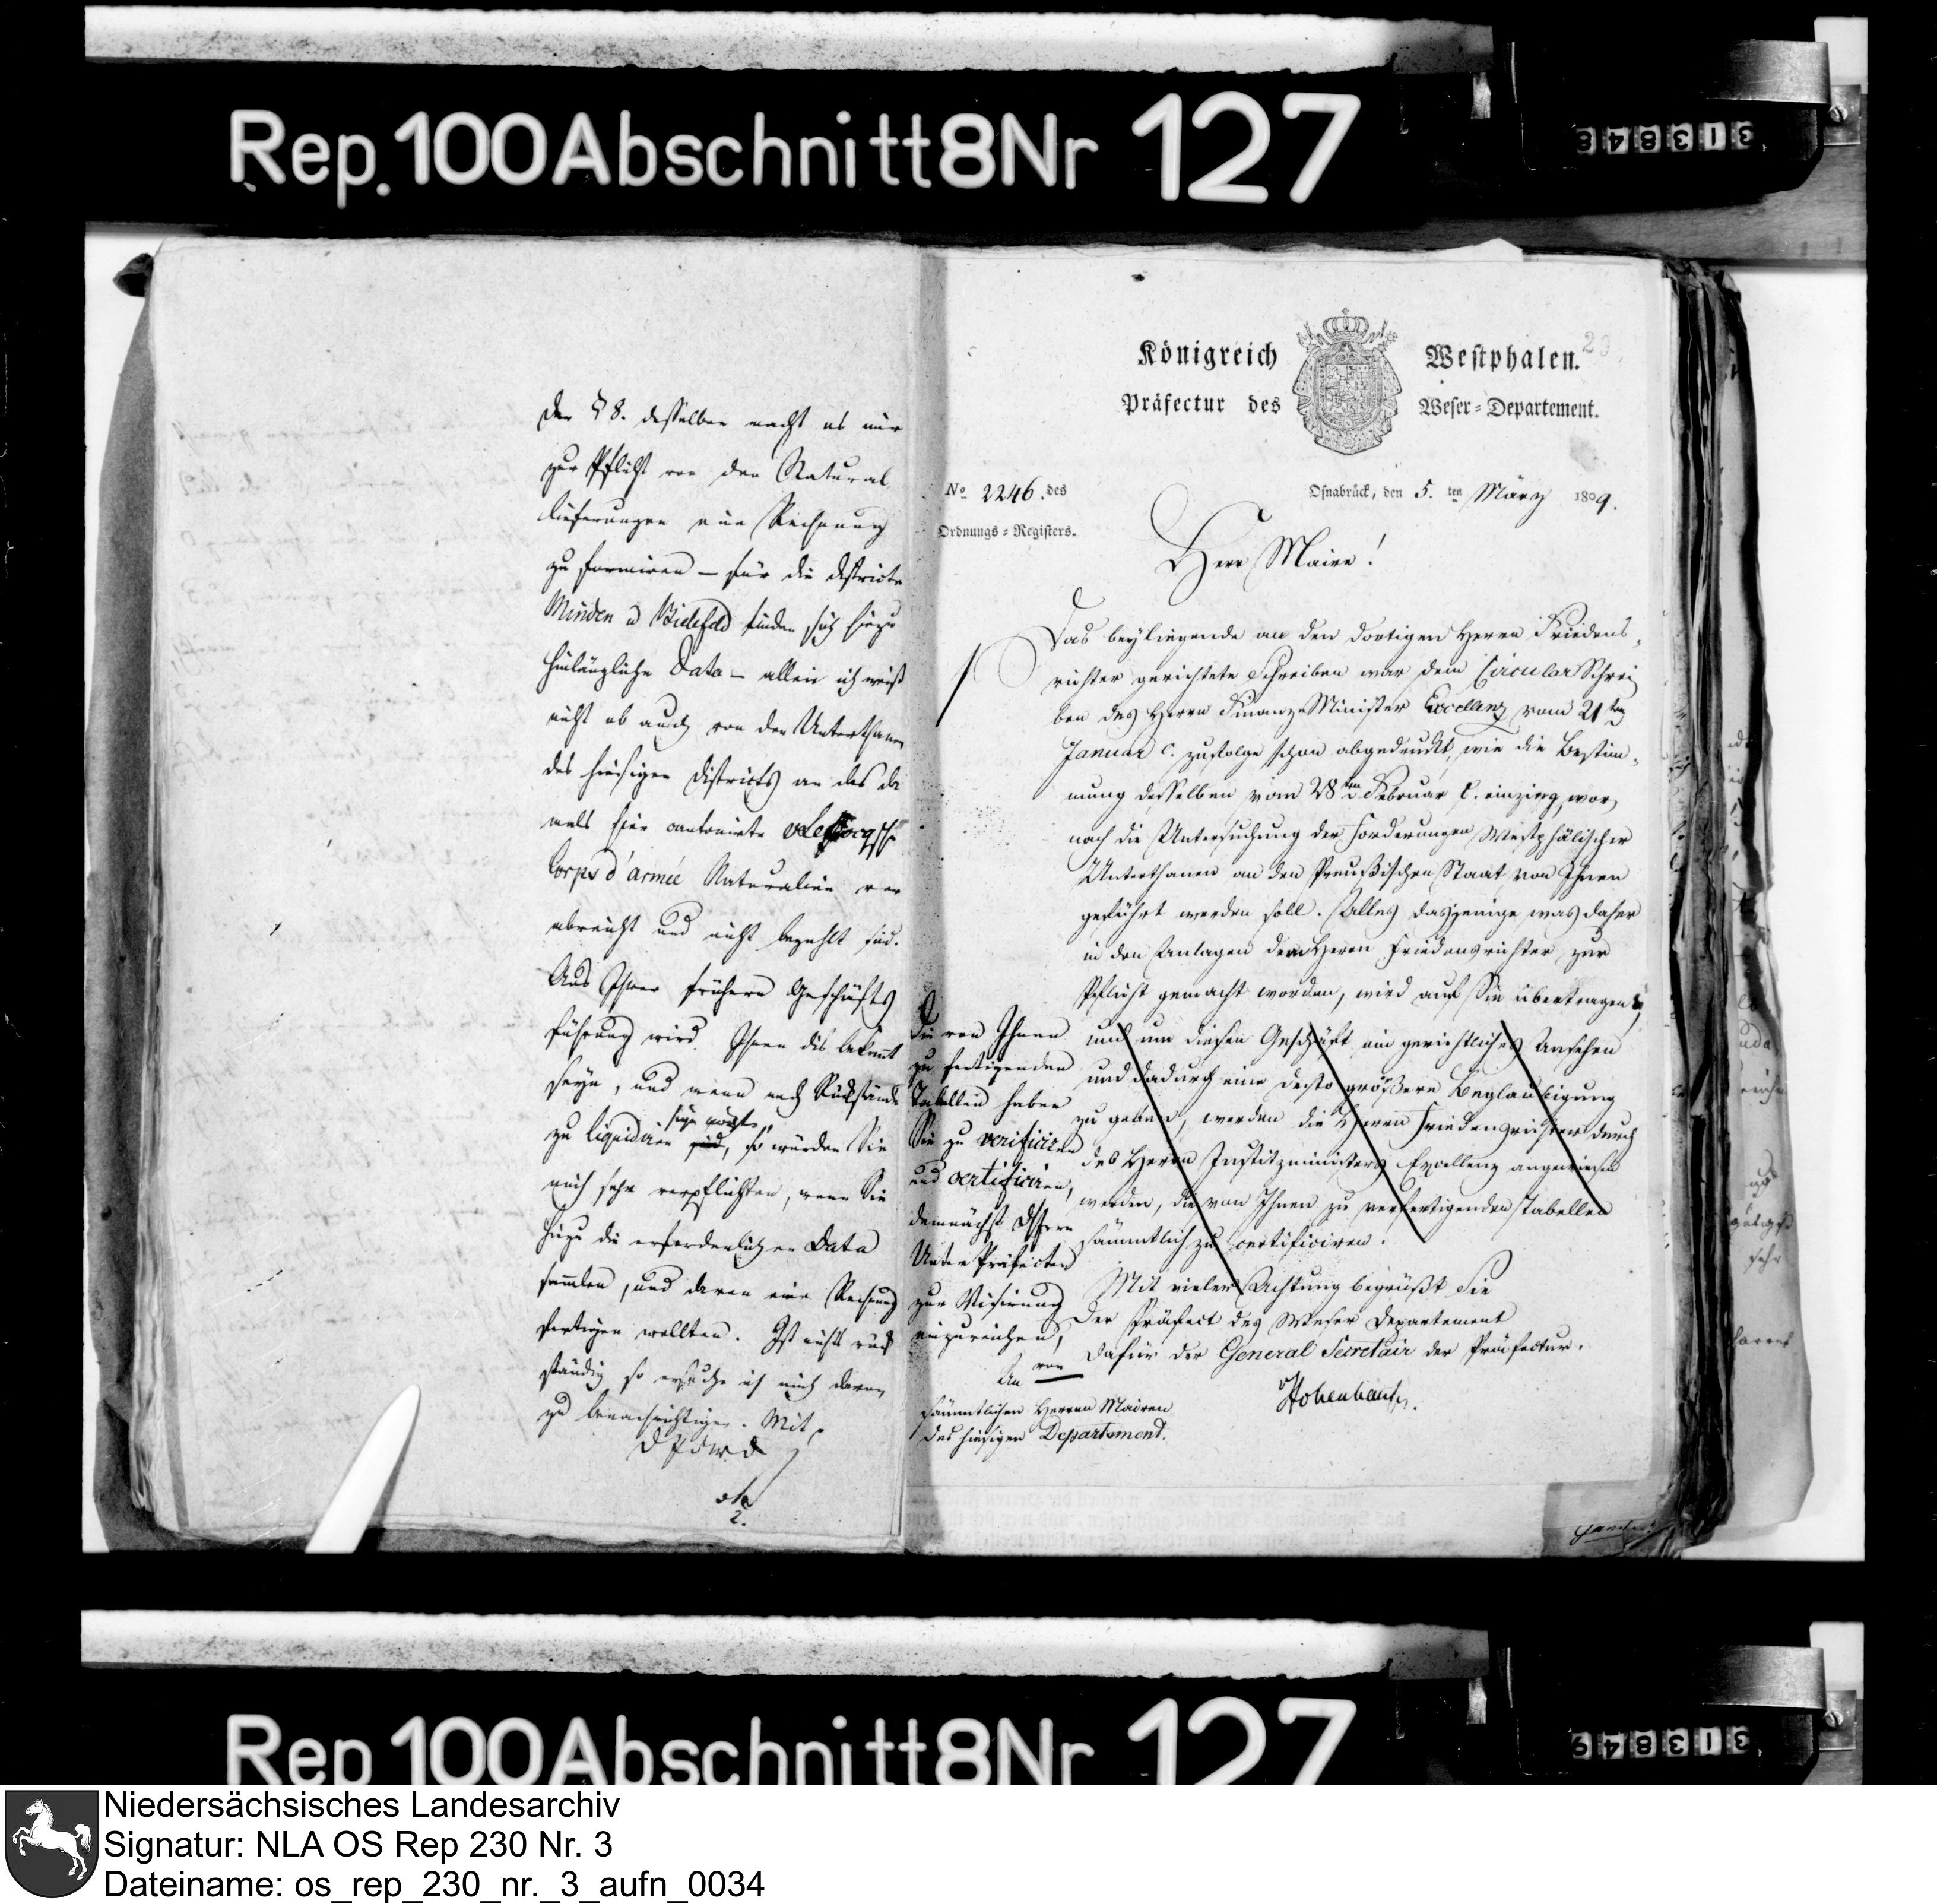 Rep. 100 Abschnitt 8 Nr 127
313848
Der § 8. desselben macht es mir
zur Pflicht von den Natural
lieferungen eine Rechnung
zu formiren – für die Districte
Minden u Bielefeld finden sich hiezu
hinlängliche Data – allein ich weiß
nicht ob auch von den Unterthanen
des hiesigen Districts an das da
mals hier cantonirte v Lecocqsche
Corps d'armée Naturalien ver
abreicht und nicht bezahlt sind.
Aus Ihrer frühern Geschäfts
führung wird Ihnen dis bekannt
seyn, und wenn noch Rückstände
zu liquidiren seyn möchten, so würden Sie
mich sehr verpflichten, wenn Sie
hiezu die erforderlichen Data
sammlen, und davon eine Rechnung
fertigen wollten. Ist nichts rück
ständig so ersuche ich mich davon
zu benachrichtigen. Mit
D P d W. D
23
Königreich Westphalen.
Präfectur des Weser-Departement.
No 2246. des
Ordnungs-Registers.
Osnabrück, den 5. ten März 1809.
Herr Maire!
Das beyliegende an den dortigen Herrn Friedens-
richter gerichtete Schreiben war dem Circular Schrei
ben des Herrn Finanz-Minister Excellenz vom 21ten
Januar c. zufolge schon abgedruckt, wie die Bestim-
mung desselben vom 28ten Februar c. einging, wor-
nach die Untersuchung der Forderungen Westphälischer
Unterthanen an den Preußischen Staat von Ihnen
geführt werden soll. Alles dasjenige was daher
in den Anlagen dem Herrn Friedensrichter zur
Pflicht gemacht worden, wird auf Sie übertragen;
und um diesen Geschäft ein gerichtliches Ansehen
und dadurch eine desto größere Beglaubigung
zu geben, werden die Herrn Friedensrichter durch
des Herrn Justitzministers Excellenz angewiesen
werden, die von Ihnen zu verfertigenden Tabellen
sämmtlich zu certificiren.
Die von Ihnen
zu fertigenden
Tabellen haben
Sie zu verificiren
und certificiren,
demnächst
Unter Präfecten
zur Visirung
einzureichen,
von
Mit vieler Achtung begrüßt Sie
Der Präfect des Weser Departement
Dafür der General Secretair der Präfectur.
vHohenhausen.
An
sämmtlichen Herren Mairen
des hiesigen Departement.
Rep 100 Abschnitt 8 Nr 127
313849
Niedersächsisches Landesarchiv
Signatur: NLA OS Rep 230 Nr. 3
Dateiname: os_rep_230_nr._3_aufn_0034